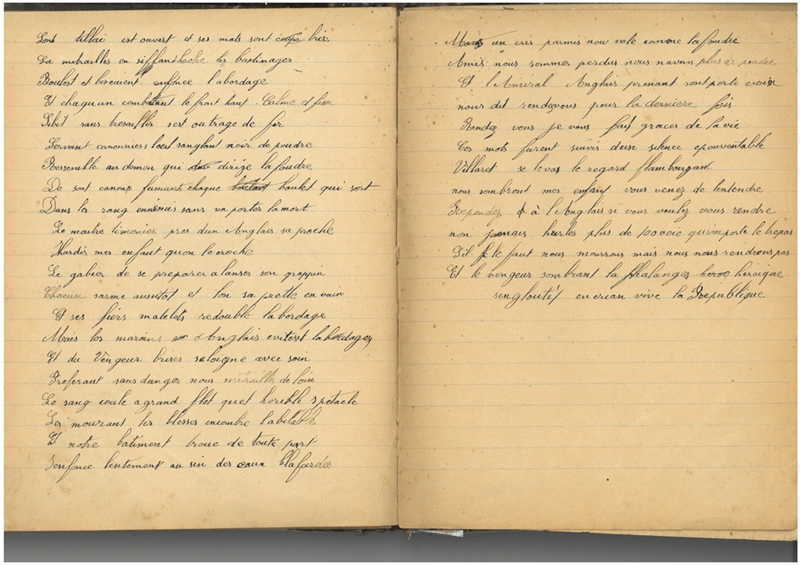 Son tillai est ouvert et ses mats sont coupé bris
La mitrailles en sifflant hache les bastinages
Boulest et biscaient enfonce l'abordage
Et chaqu'un combattant le front haut Calme et fier
Sebit sans tresailler set outrage de fer
Servant canonniers tout sanglant noir de poudre
Ressemble au demon qui dirige la foudre
De sont canons fumants chaque boulet qui sort
Dans les rang ennemies sans va porter la mort
Le maitre timonier pres d'un Anglais sa proche
Hardis mes enfant qu'on le croche
Le gabier de se preparer a lanser son grappin
Chacun s'arme aussitot et l'on sa prette en vain
Et ses fiers matelots redouble l'abordage
Mais les marains Anglais evitent labordages
Et du Vengeur brises s'eloigne avec soin
Preferant sans danger nous mitraille de loin
Le sang coule a grand flot quel horible spetacle
Les mourant les blesses encombre
Et notre batiment troue de toute part
Senfonce lentement au sin des eaux blafardes
Mais un cris parmis nou vole comme la foudre
Amis nous sommes perdus nous navons plus de poudre
Et l'Amiral Anglais prenant sont porte voix
nous dit rendevous pour la derniere fois
Rendez vous je vous fait graces de la vie
Ces mots furent suivis duse silence epouventable
Villaret se levas le regard flambougard
nous sombront mes enfant vous venez de lentendre
Repondez à l'Anglais si vous voulez vous rendre
non jamais hurles plus de 100 voie qu'importe le trepas
S'il le faut nous mourrons mais nous nous rendrons pas
Et le vengeur sombrant la phalanges heroique
sengloutit en criant vive la Republique